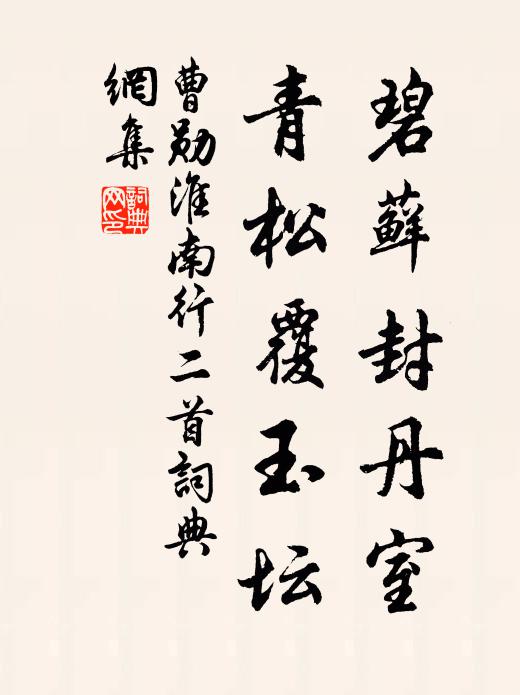 碧蘚封丹室
青松覆玉坛
曹勋淮南行二首詞典
網集
詞典网印